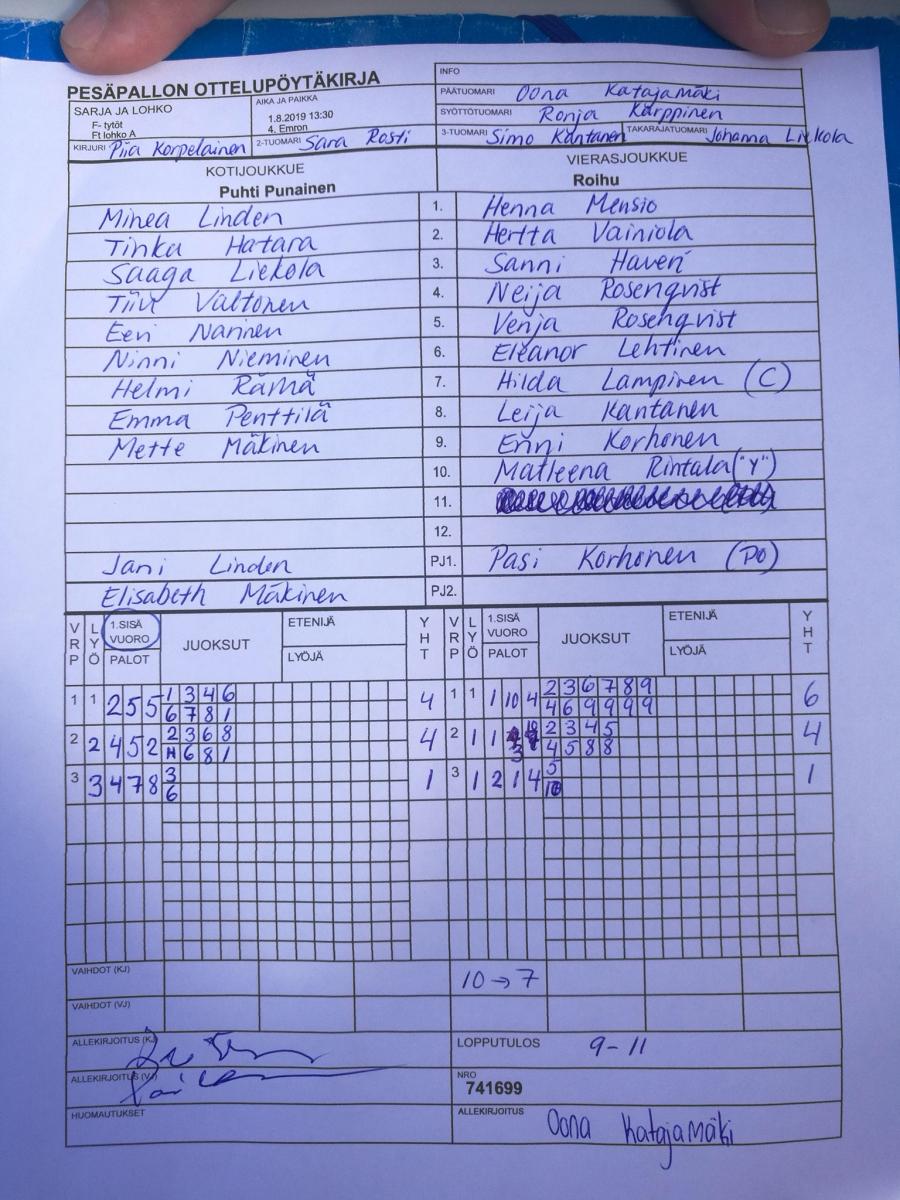 PESÄPALLON OTTELUPÖYTÄKIRJA
INFO
PÄÄTUOMARI Oona Katajamäki
SARJA JA LOHKO
F- tytöt
Ft lohko A
AIKA JA PAIKKA
1.8.2019 13:30
4. Emron
SYÖTTÖTUOMARI Ronja Karppinen
KIRJURI Piia Korpelainen 2-TUOMARI Sara Rosti 3-TUOMARI Simo Kantanen TAKARAJATUOMARI Johanna Liekola
KOTIJOUKKUE VIERASJOUKKUE
Puhti Punainen Roihu
Minea Linden 1. Henna Mensio
Tinka Hatara 2. Hertta Vainiola
Saaga Liekola 3. Sanni Haveri
Tiivi Valtonen 4. Neija Rosenqvist
Eevi Narinen 5. Venja Rosenqvist
Ninni Nieminen 6. Eleanor Lehtinen
Helmi Rämä 7. Hilda Lampinen (C)
Emma Penttilä 8. Leija Kantanen
Mette Mäkinen 9. Enni Korhonen
10. Matleena Rintala ("Y")
11.
12.
Jani Linden PJ1. Pasi Korhonen (PO)
Elisabeth Mäkinen PJ2.
VRP LYÖ 1.SISÄ VUORO PALOT JUOKSUT ETENIJÄ LYÖJÄ YHT VRP LYÖ 1.SISÄ VUORO PALOT JUOKSUT ETENIJÄ LYÖJÄ YHT
1 1 2 5 5 1 3 4 6 4 1 1 1 10 4 2 3 6 7 8 9 6
6 7 8 1 4 6 9 9 9 9
2 2 4 5 2 2 3 6 8 4 2 1 1 2 3 4 5 4
H 6 8 1 4 5 8 8
3 3 4 7 8 3 1 3 1 2 1 4 5 1
6 10
VAIHDOT (KJ) 10→7
VAIHDOT (VJ)
ALLEKIRJOITUS (KJ) LOPPUTULOS 9-11
ALLEKIRJOITUS (VJ) NRO
741699
HUOMAUTUKSET ALLEKIRJOITUS Oona Katajamäki